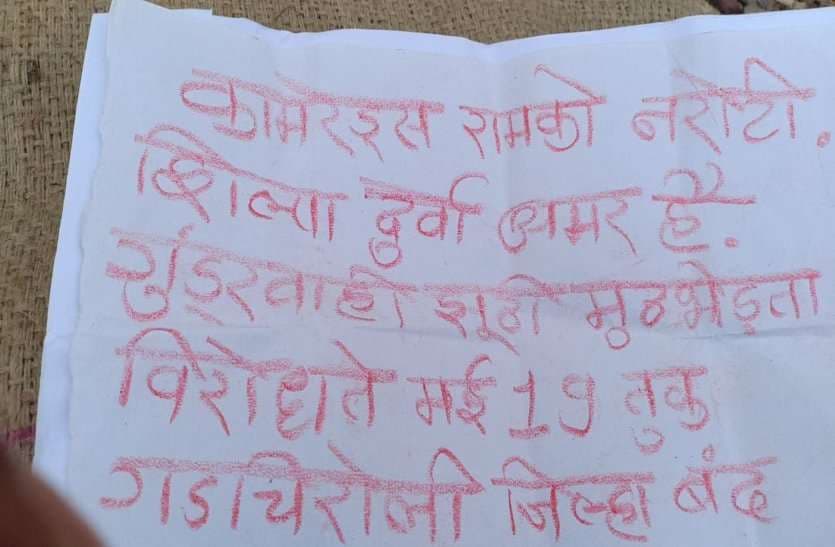 कामेरड्स रामको नरोटी.
शिल्पा दुर्वा अमर है.
गुंडुरवाही झूठी मुठभेड़ता
विरोधते मई 19 तुकु
गडचिरोली जिल्हा बंद